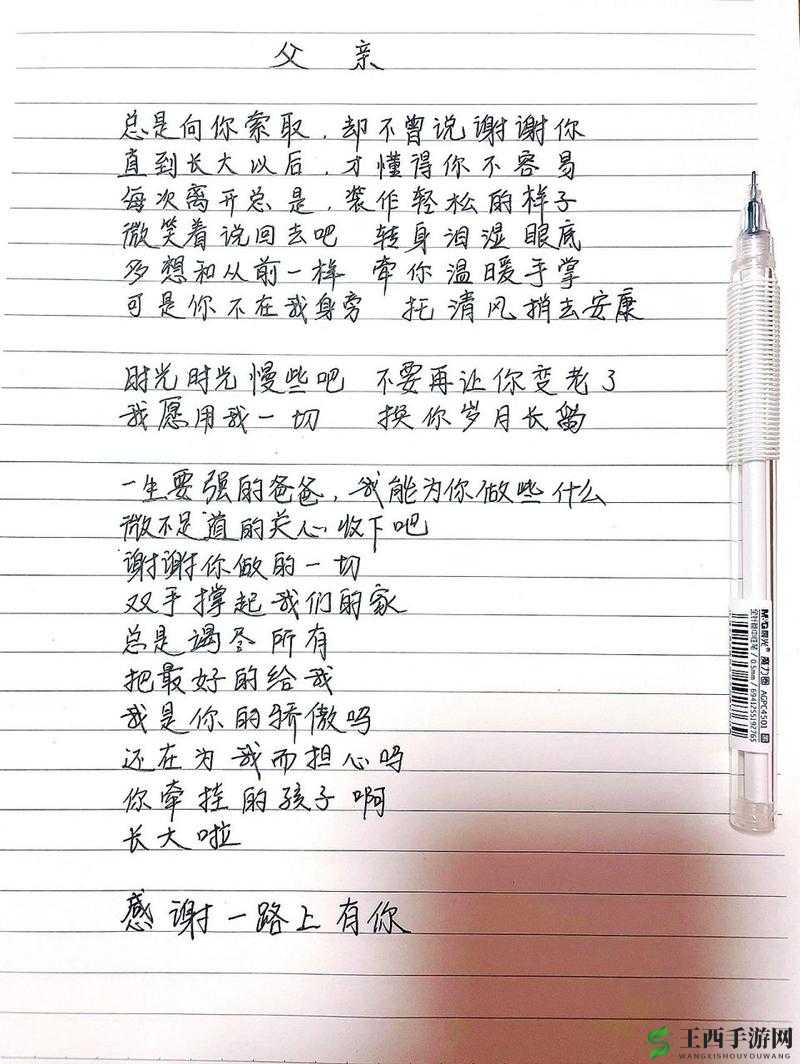 父 亲
总是向你索取，却不曾说谢谢你
直到长大以后，才懂得你不容易
每次离开总是，装作轻松的样子
微笑着说回去吧 转身泪湿眼底
多想和从前一样 牵你温暖手掌
可是你不在我身旁 托清风捎去安康
时光时光慢些吧 不要再让你变老了
我愿用我一切 换你岁月长留
一生要强的爸爸，我能为你做些什么
微不足道的关心收下吧
谢谢你做的一切
双手撑起我们的家
总是竭尽所有
把最好的给我
我是你的骄傲吗
还在为我而担心吗
你牵挂的孩子啊
长大啦
感谢一路上有你
M&G晨光® 魔力圈 AGPC4501
全针管中性笔/0.5mm/6941255192765
王西手游网
WANGXISHOUYOUWANG